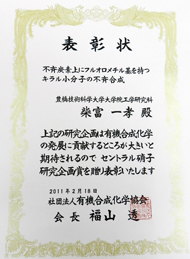 表彰状
不斉炭素上にフルオロメチル基を持つ
キラル小分子の不斉合成
豊橋技術科学大学大学院工学研究科
柴富一孝 殿
上記の研究企画は有機合成化学
の発展に貢献するところが大きいと
期待されるので セントラル硝子
研究企画賞を贈り表彰いたします
2011年2月18日
社団法人有機合成化学協会
会長 福山 透